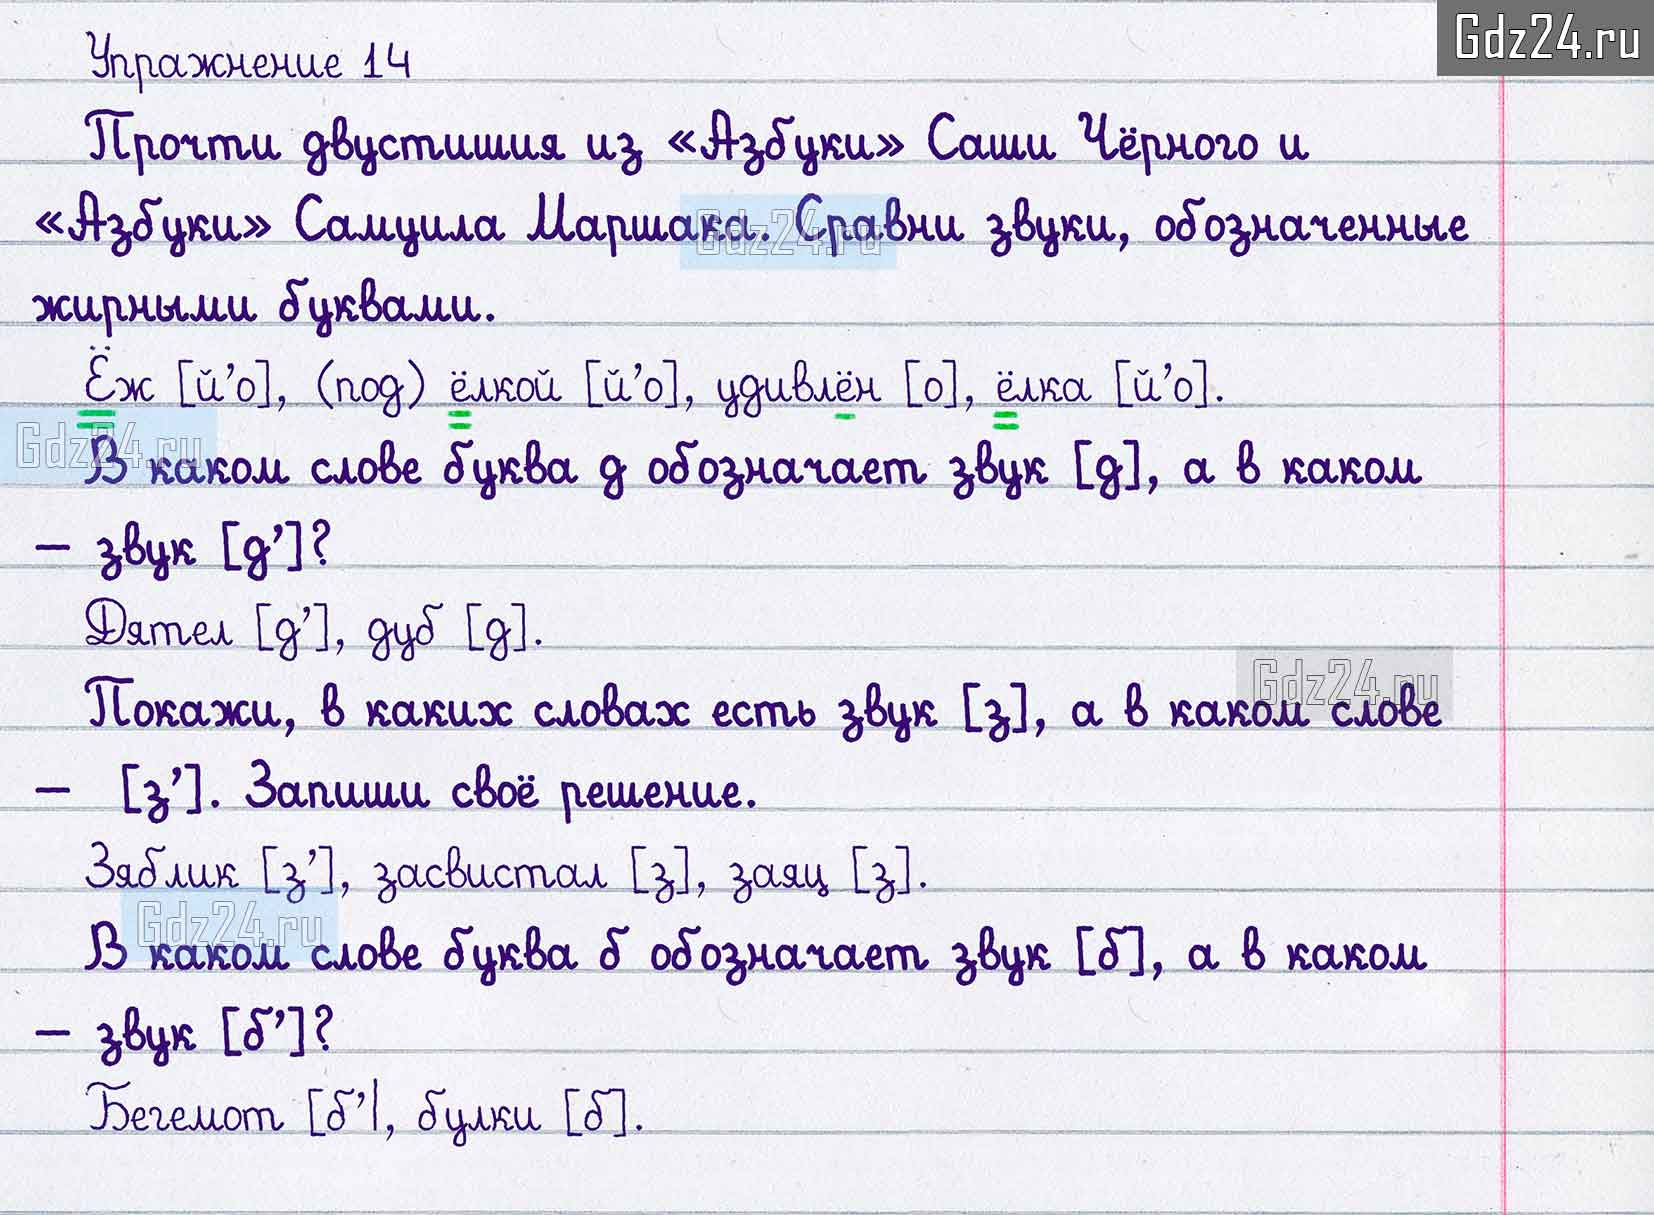 Gdz24.ru
Упражнение 14
Прочти двустишия из «Азбуки» Саши Чёрного и
«Азбуки» Самуила Маршака. Сравни звуки, обозначенные
Gdz24.ru
жирными буквами.
Ёж [й'о], (под) ёлкой [й'о], удивлён [о], ёлка [й'о].
Gdz24.ru
В каком слове буква д обозначает звук [д], а в каком
– звук [д']?
Дятел [д'], дуб [д].
Gdz24.ru
Покажи, в каких словах есть звук [з], а в каком слове
– [з']. Запиши своё решение.
Зяблик [з'], засвистал [з], заяц [з].
Gdz24.ru
В каком слове буква б обозначает звук [б], а в каком
– звук [б']?
Бегемот [б'|, булки [б].